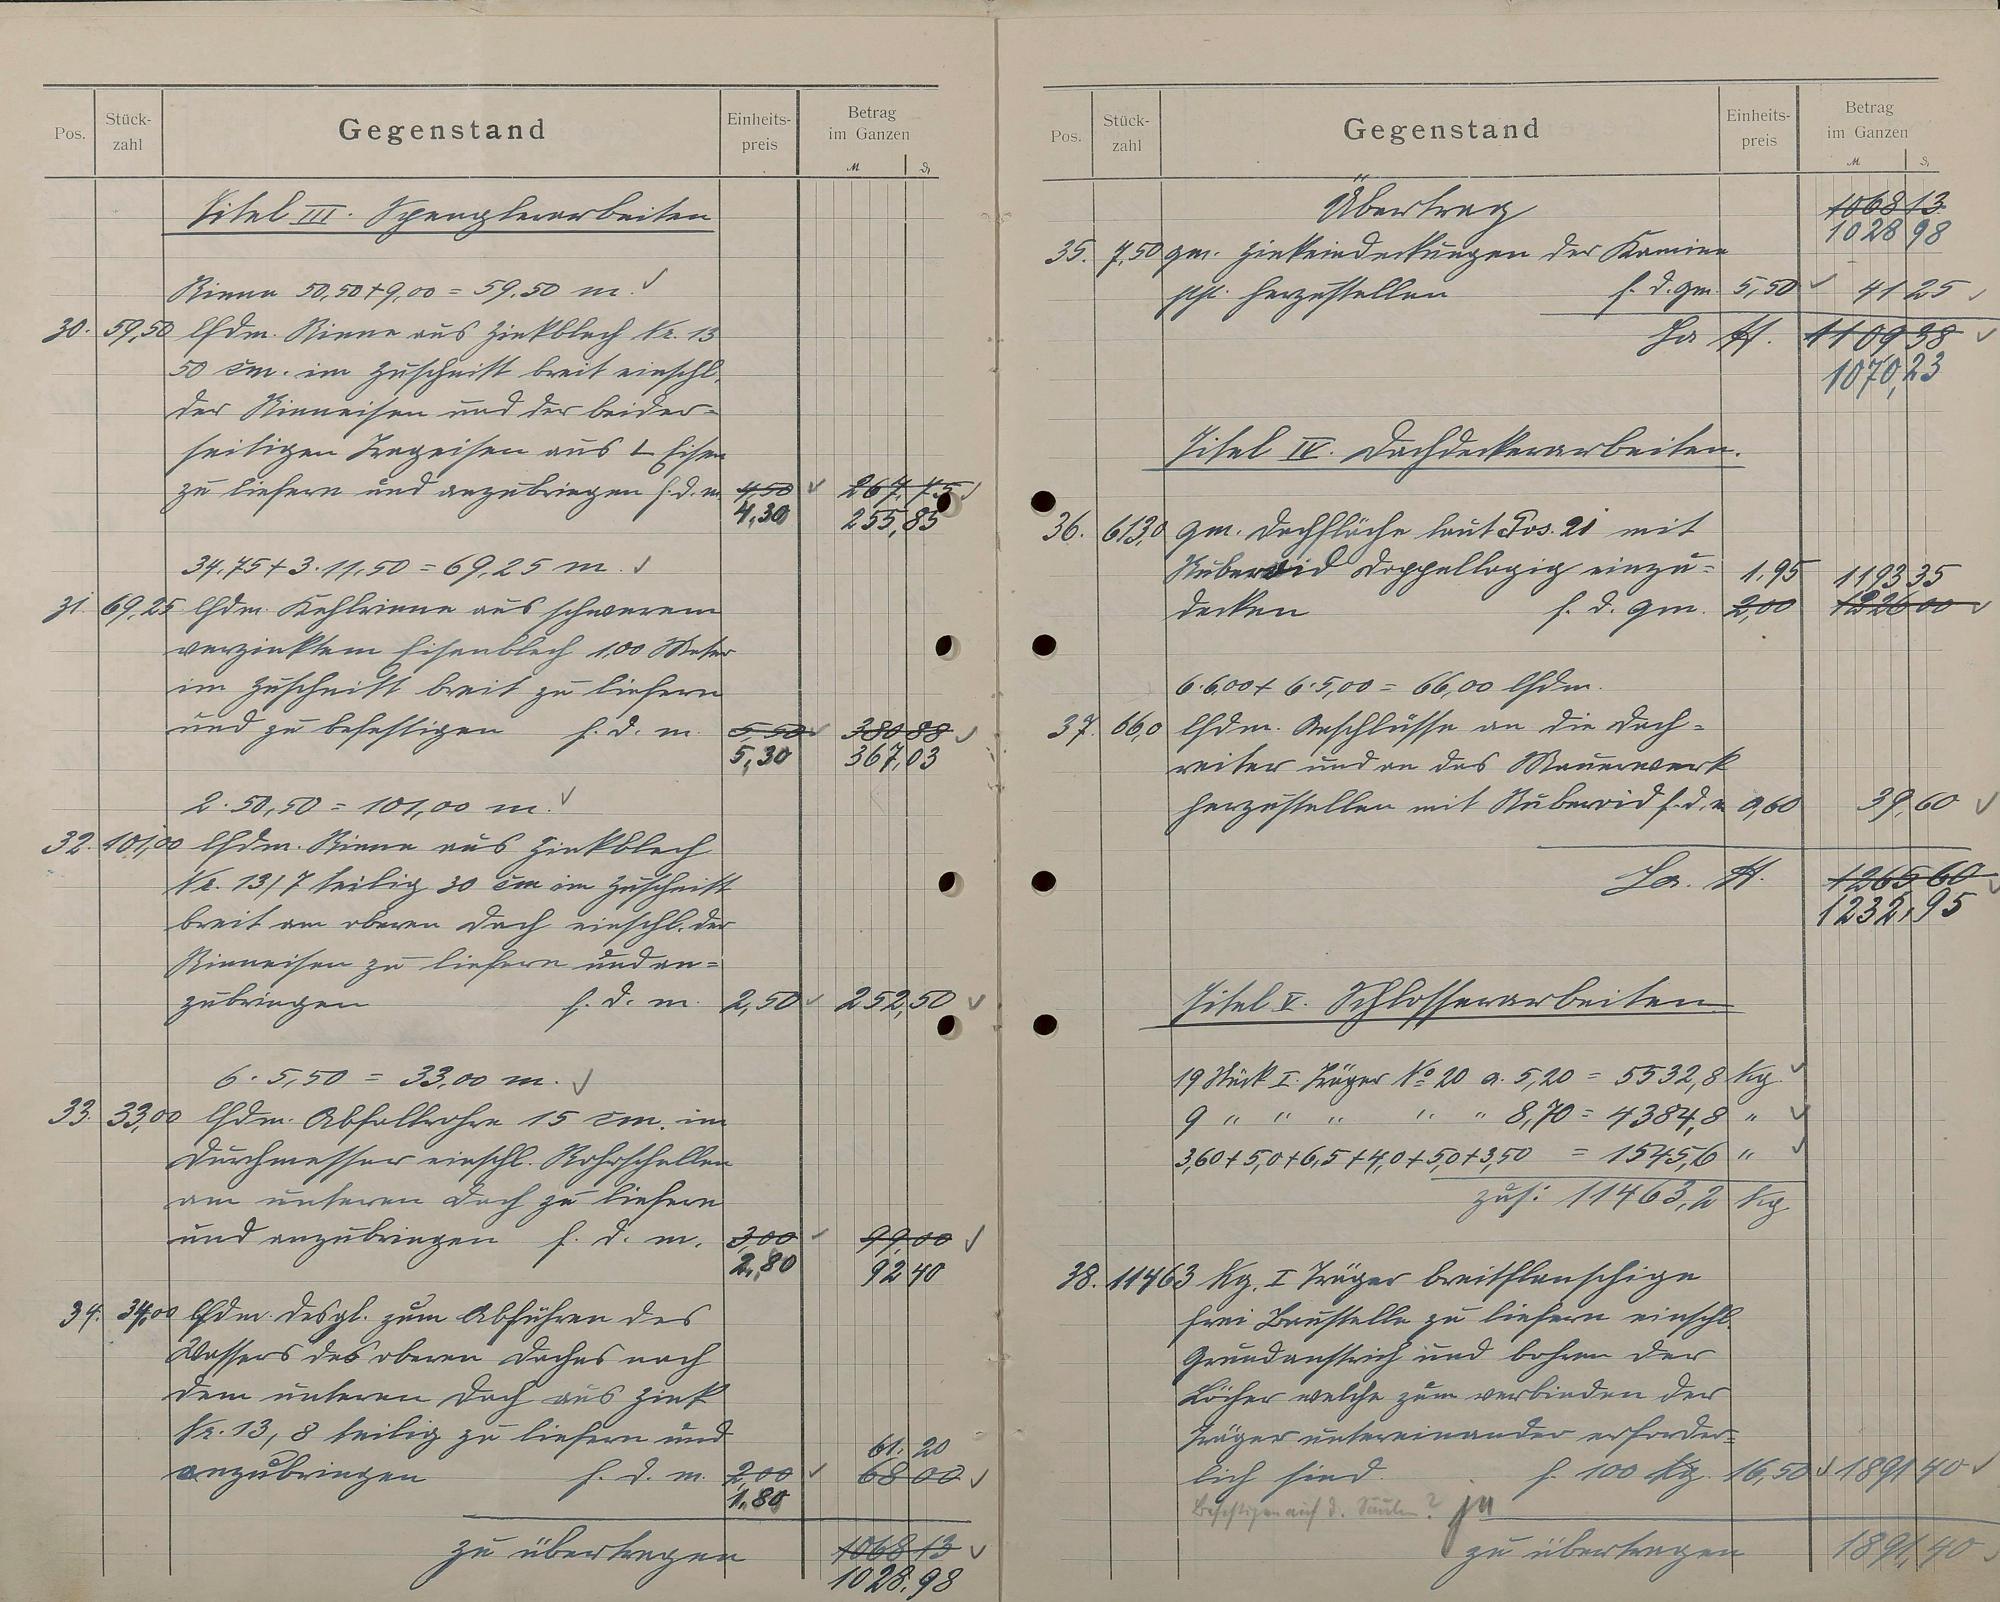 Pos.
Stück-
zahl
Gegenstand
Einheits-
preis
Betrag
im Ganzen
M
₰
Titel III. Spenglerarbeiten
Rinne 50,50+9,00 = 59.50 m.
30. 59,50 lfdm. Rinne aus Zinkblech Nr. 13
50 cm. im Zuschnitt breit einschl.
der Rinneisen und der beider=
seitigen Trageisen aus L Eisen
zu liefern und anzubringen f. d. m. 4,50 267.75
4,30 255,85
34,75+3.11,50 = 69,25 m.
31. 69,25 lfdm. Kehlrinne aus schwerem
verzinktem Eisenblech 1,00 Meter
im Zuschnitt breit zu liefern
und zu befestigen f. d. m. 5,50 380 88
5,30 367,03
2.50,50 = 101,00 m.
32. 101,00 lfdm. Rinne aus Zinkblech
Nr. 13/7 teilig 30 cm im Zuschnitt
breit am oberen Dach einschl. der
Rinneisen zu liefern und an=
zubringen f. d. m. 2,50 252,50
6.5,50 = 33,00 m.
33. 33,00 lfdm. Abfallrohre 15 cm. im
Durchmesser einschl. Rohrschellen
am unteren Dach zu liefern
und anzubringen f. d. m. 3,00 99,00
2,80 92 40
34. 34,00 lfdm. desgl. zum Abführen des
Wassers des oberen Daches nach
dem unteren Dach aus Zink
Nr. 13, 8 teilig zu liefern und
61. 20
anzubringen f. d. m. 2,00 68 00
1,80
zu übertragen 1068 13
1028,98
Pos.
Stück-
zahl
Gegenstand
Einheits-
preis
Betrag
im Ganzen
M
₰
Übertrag 1068 13
1028 98
35. 7,50 qm. Zinkeindeckungen der Kamine
pp. herzustellen f. d. qm 5,50 41 25
Sa M. 1109 38
1070,23
Titel IV. Dachdeckerarbeiten.
36. 613,0 qm. Dachfläche laut Pos. 21 mit
Ruberoid doppellagig einzu= 1,95 1193 35
decken f. d. qm. 2,00 1226 00
6.6,00+6.5,00 = 66,00 lfdm.
37. 66,0 lfdm. Anschlüsse an die Dach=
reiter und an das Mauerwerk
herzustellen mit Ruberoid f. d. m 0,60 39,60
Sa. M. 1265 60
1232,95
Titel V. Schlosserarbeiten
19 Stück I. Träger No 20 a. 5,20 = 5532,8 Kg
9 " " " " " 8,70 = 4384,8 "
3,60+5,0+6,5+4,0+5,0+3,50 = 1545,6 "
zus: 11463,2 Kg
38. 11463 Kg. I Träger breitflanschige
frei Baustelle zu liefern einschl.
Grundanstrich und bohren der
Löcher welche zum verbinden der
Träger untereinander erforder=
lich sind. f. 100 Kg. 16,50 1891 40
Befestigen auf d. Säulen? ja
zu übertragen 1891,40